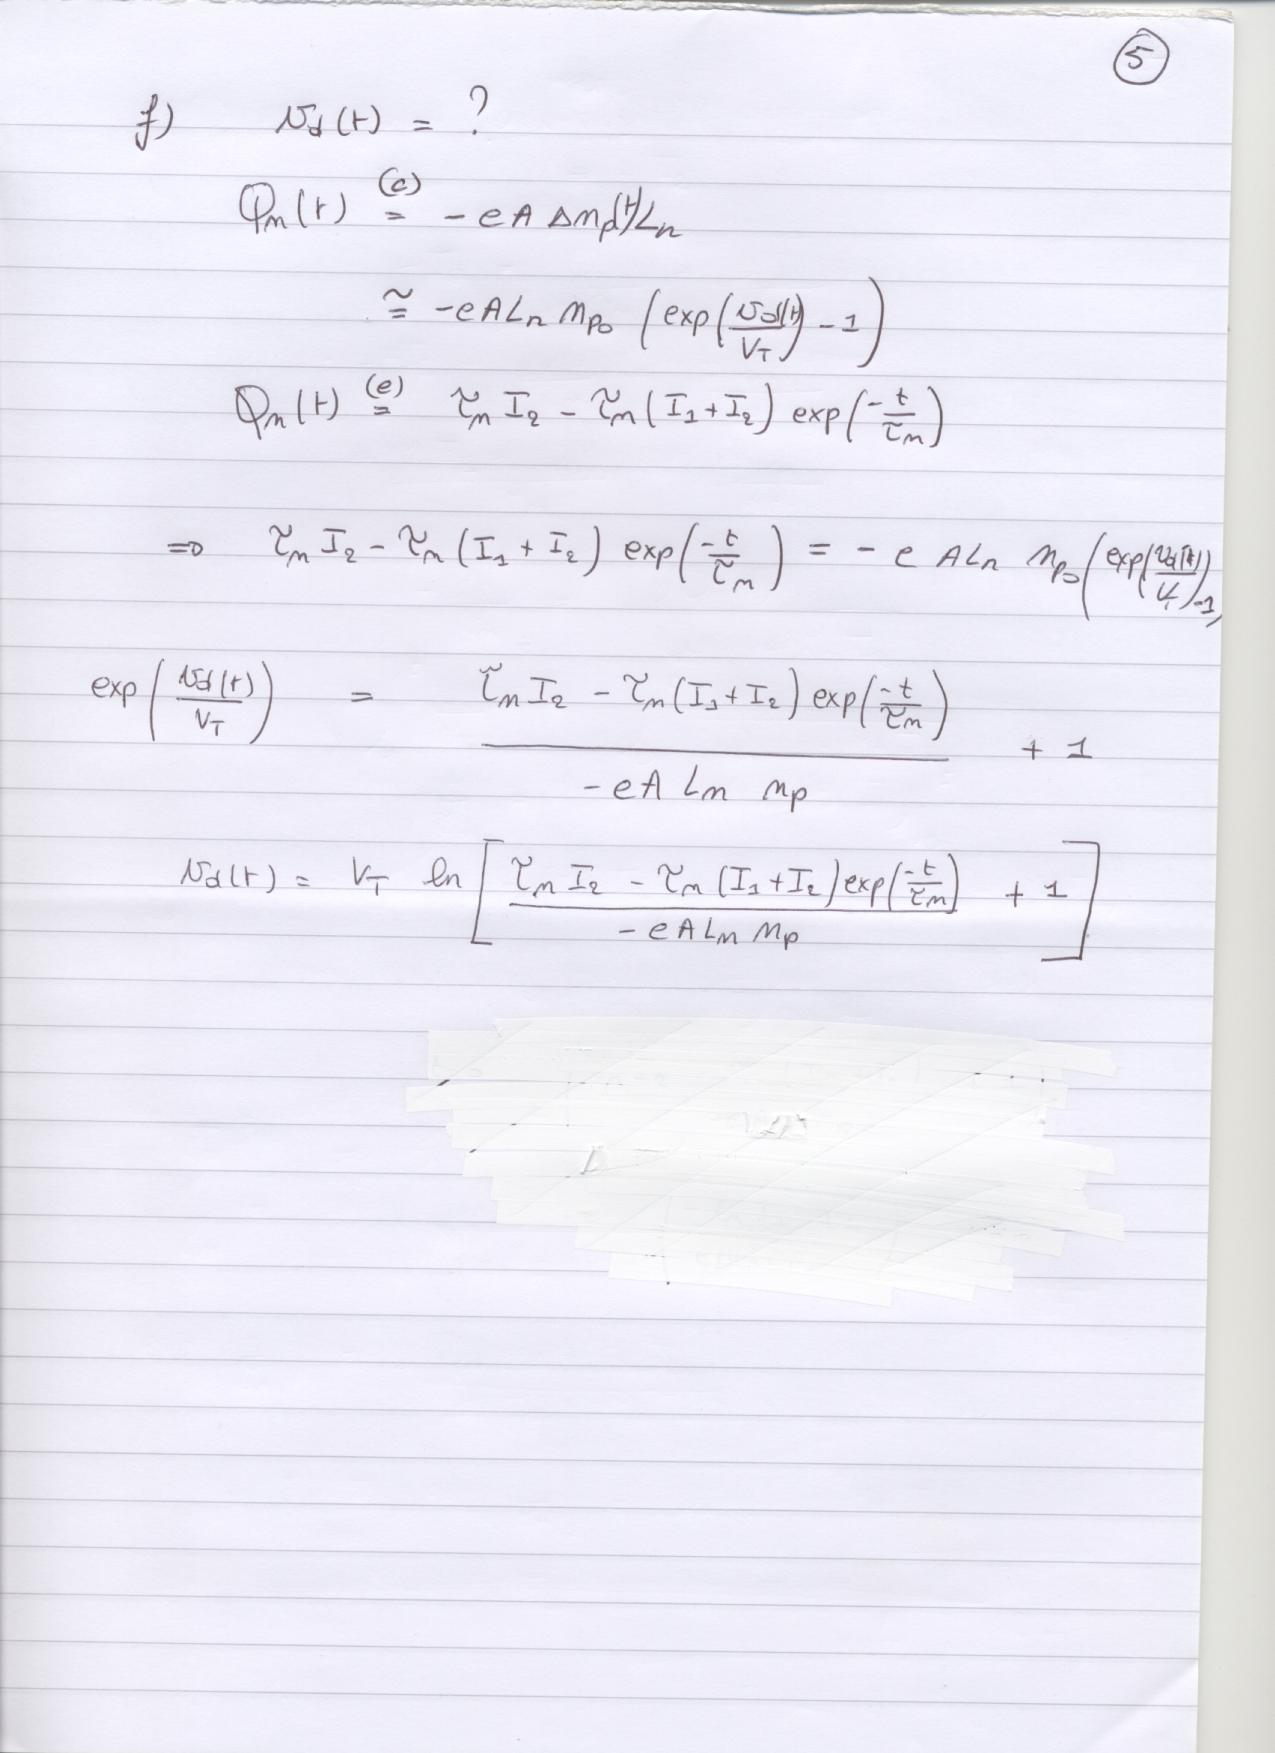 5
f) v_d(t) = ?
Q_n(t) (c)= - e A Δn_p(t) L_n
≅ -e A L_n n_p₀ (exp(v_d(t)/V_T) - 1)
Q_n(t) (e)= τ_n I₂ - τ_n (I₁ + I₂) exp(-t/τ_n)
⇒ τ_n I₂ - τ_n (I₁ + I₂) exp(-t/τ_n) = - e A L_n n_p₀ (exp(v_d(t)/V_T) -1)
exp(v_d(t)/V_T) = (τ_n I₂ - τ_n (I₁ + I₂) exp(-t/τ_n)) / (-e A L_n n_p) + 1
v_d(t) = V_T ln [(τ_n I₂ - τ_n (I₁ + I₂) exp(-t/τ_n)) / (-e A L_n n_p) + 1]